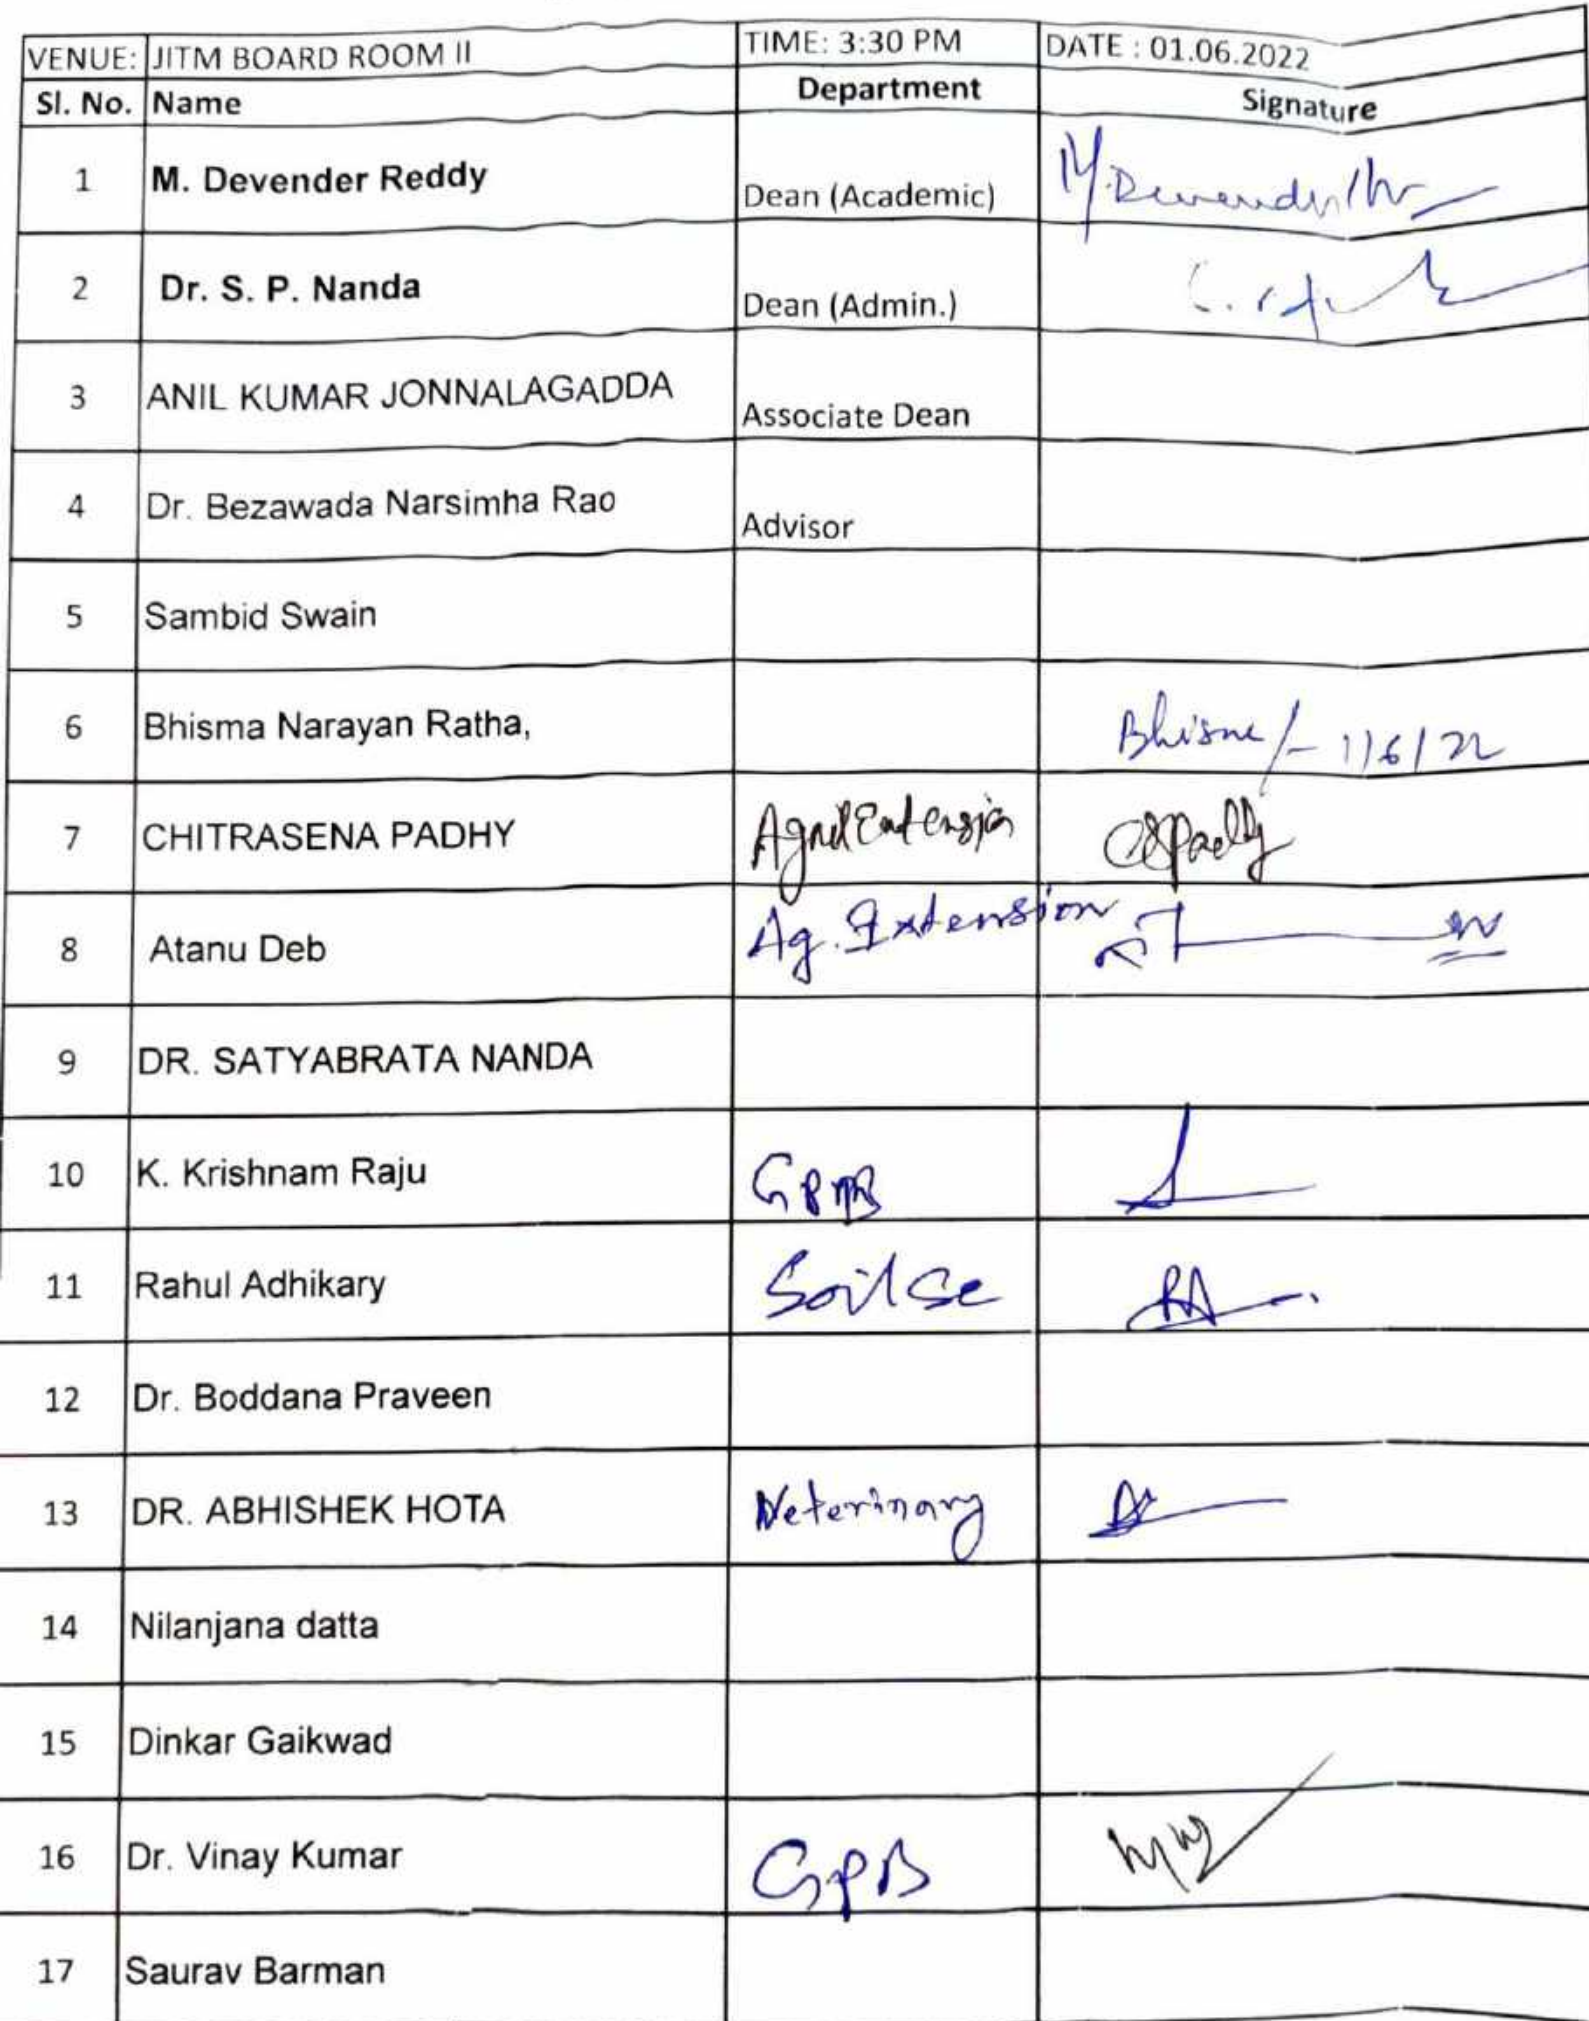 VENUE: JITM BOARD ROOM II TIME: 3:30 PM DATE : 01.06.2022
Sl. No. Name Department Signature
1 M. Devender Reddy Dean (Academic)
2 Dr. S. P. Nanda Dean (Admin.)
3 ANIL KUMAR JONNALAGADDA Associate Dean
4 Dr. Bezawada Narsimha Rao Advisor
5 Sambid Swain
6 Bhisma Narayan Ratha, 1/6/22
7 CHITRASENA PADHY Extension
8 Atanu Deb Ag. Extension
9 DR. SATYABRATA NANDA
10 K. Krishnam Raju
11 Rahul Adhikary Soil Sc
12 Dr. Boddana Praveen
13 DR. ABHISHEK HOTA Veterinary
14 Nilanjana datta
15 Dinkar Gaikwad
16 Dr. Vinay Kumar GPB
17 Saurav Barman